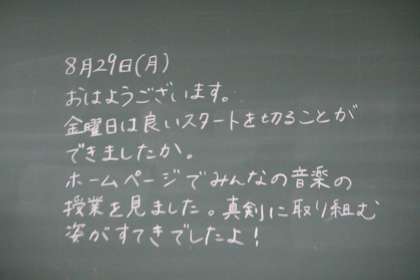 8月29日(月)
おはようございます。
金曜日は良いスタートを切ることが
できましたか。
ホームページでみんなの音楽の
授業を見ました。真剣に取り組む
姿がすてきでしたよ！